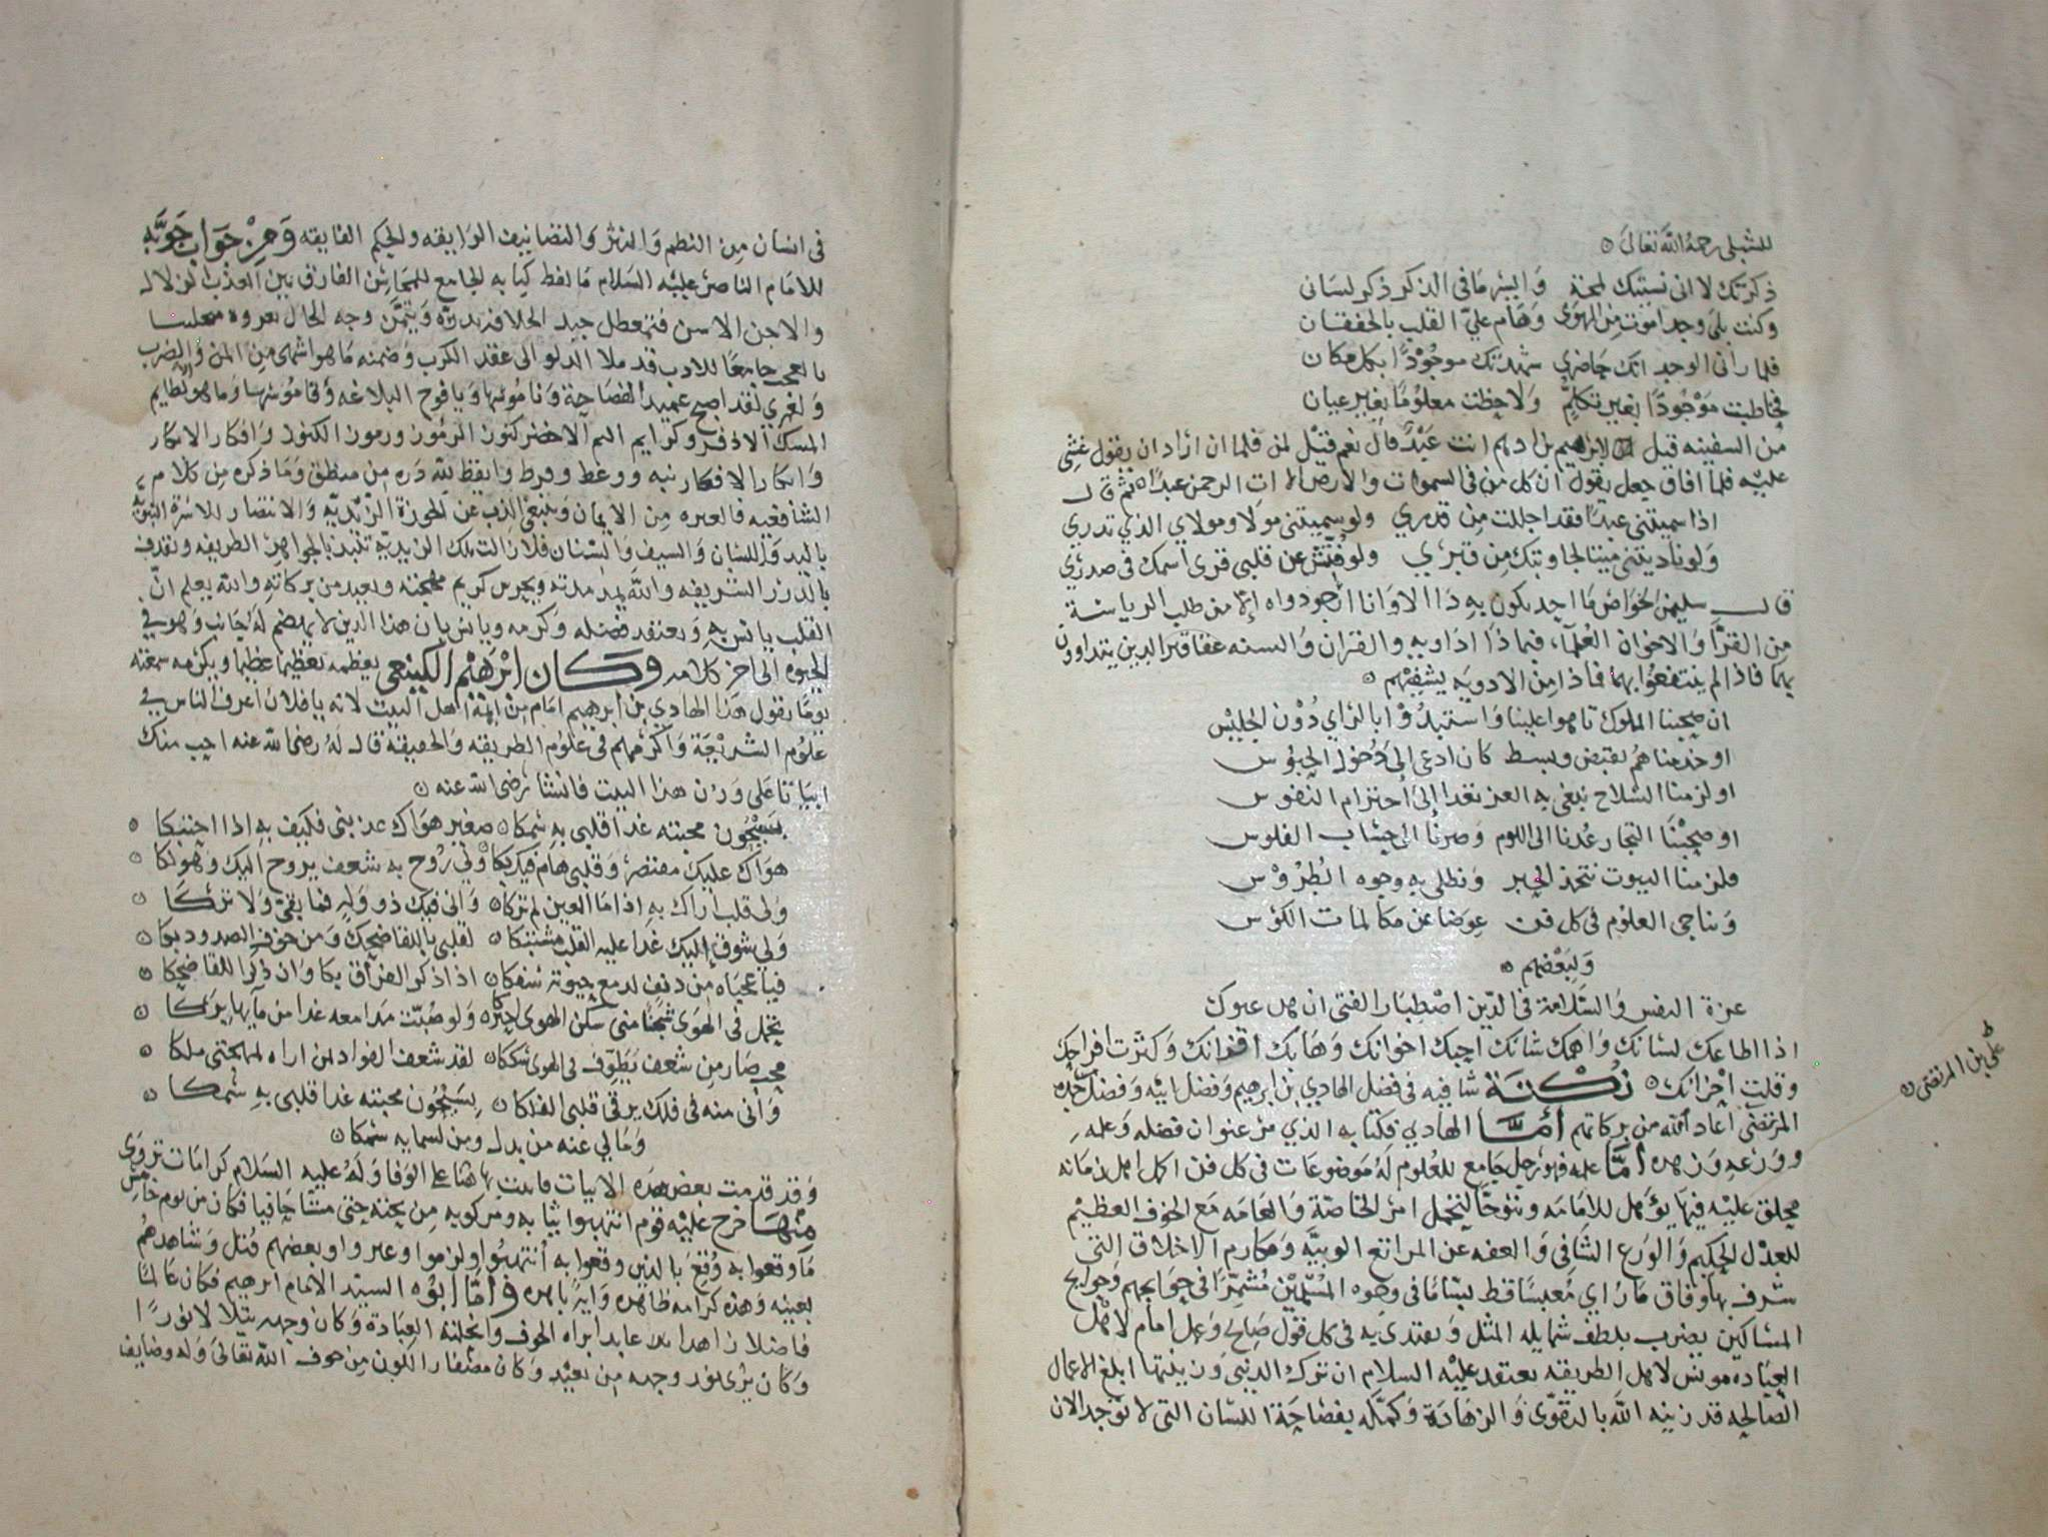 للشبلي رحمه الله تعالى
ذكرتك لا اني نسيتك لمحة وايسر ما في الذكر ذكر لساني
وكنت بلى وجد اموت من الهوى وهام علي القلب بالخفقان
فلما راني الوجد انك حاضري شهدتك موجودا بكل مكان
فخاطبت موجودا بغير تكلم ولاحظت معلوما بغير عيان
من السفينه قيل لابرهيم بن ادهم انت عبد قال نعم فقيل لمن فلما ان اراد ان يقول غشي
عليه فلما افاق جعل يقول ان كل من في السموات والارض الا ات الرحمن عبدا ثم قال
اذا سميتني عبدا فقد اجللت من قدري ولو سميتني مولا ومولاي الذي تدري
ولو ناديتني ميتا لجاوبتك من قبري ولو فتش عن قلبي قرى اسمك في صدري
قال سليمن الخواص ما احد يكون به ذا الا وانا ارجو دواه الا من طلب الرياسة
من القرا والاخوان العلما، فبماذا اداويه والقران والسنه عقاقير الدين يتداوون
بهما فاذا لم ينتفعوا بهما فماذا من الادويه يشفيهم
ان صحبنا الملوك تاهوا علينا واستبدوا بالراي دون الجليس
او خدمناهم بقبض وبسط كان ادعى الى دخول الحبوس
او لزمنا السلاح نبغي به العز نغدا الى احترام النفوس
او صحبنا التجار عدنا الى اللوم وصرنا الى حساب الفلوس
فلزمنا البيوت نتخذ الحبر ونطلي به وجوه الطروس
ونناجي العلوم في كل فن عوضا عن مكالمات الكؤس
ولبعضهم
عزة النفس والسلامة في الدين اصطبار الفتى ان
اذا اطاعك لسانك واهمك شانك احبك اخوانك وهابك اقرانك وكثرت افراحك
وقلت احزانك نكتة شافيه في فضل الهادي بن ابرهيم وفضل ابيه وفضل جده
المرتضى اعاد الله من بركاتهم اما الهادي فكتابه الذي من عنوان فضله وعلمه
وورعه وزهده اما علمه فهو رجل جامع للعلوم له موضوعات في كل فن اكمل اهل زمانه
محلق عليه فيها يؤهل للامامه لتحمل امر الخاصة والعامه مع الخوف العظيم
للعدل الحكيم والورع الشافي والعفه عن المراتع الوبيه ومكارم الاخلاق التي
شرف بها وفاق ما راي معبسا قط بساما في وجوه المسلمين مشمرا في حوايجهم وحوايج
المساكين يضرب بلطف شمايله المثل ويقتدى به في كل قول صالح وعمل امام لاهل
العباده مونس لاهل الطريقه يعتقد عليه السلام ان ترك الدنيى وزينتها ابلغ الاعمال
الصالحه قد زينه الله بالتقوى والزهادة وكمله بفصاحة اللسان التي لا توجد الان
علي بن المرتضى
في انسان من النظم والنثر والتصانيف الرايقه والحكم الفايقه ومن جواب جوبه
للامام الناصر عليه السلام ما لفظ كتابه الجامع للمحاسن الفارق بين العذب الزلال
والاجن الاسن وجه الحال
جامعا للادب قد ملا الدلو الى عقد الكرب وضمنه ما هو اشهى من المن والضرب
ولعمري لقد اصبح عميد الفصاحة وناموسها ويافوخ البلاغه وقاموسها وما هو لطايم
المسك الاذفر وكرايم اليم الاخضر كنوز الرموز ورموز الكنوز وافكار الابكار
وابكار الافكار نبه ووعظ وايقظ لله دره من منطق وما ذكره من كلام
الشافعيه فالعبره من الايمان وينبغي الذب عن الحوزة الزيديه والانتصار للاسرة النبويه
باليد واللسان والسيف والسنان فلا زالت تلك الزيديه بالجواهر الطريفه
بالدرر الشريفه والله يمد مدته ويحرس كريم مهجته ويعيد من بركاته والله يعلم ان
القلب يانس به ويعتقد فضله وكرمه ويانس بان هذا الدين لا يهضم له جانب وهو في
الحيوة الى اخر كلامه وكان ابرهيم الكينعي يعظمه تعظيما عظيما ويكرمه سمعته
يوما يقول هذا الهادي بن ابرهيم امام من ايمة اهل البيت لانه يا فلان اعرف الناس في
علوم الشريعة واكرمهم في علوم الطريقه والحقيقة قال له رضي الله عنه احب منك
ابياتا على وزن هذا البيت فانشا رضي الله عنه
بسيحون محبته غدا قلبي به سمكا صغير هواك عذبني فكيف به اذا احتنكا
هواك عليك مقتصر وقلبي هام فيك بكا ولي روح به شعف يروح اليك
ولي قلب اراك به اذا ما العين لم تركا واني فيك ذو وله فما يبقي ولا تركا
ولي شوق اليك غدا عليه القلب مشتبكا لقلبي باللقا ضحك ومن خوف الصدود بكا
فيا عجباه من دنف لدمع جفونه سفكا اذا ذكر الفراق بكا وان ذكر اللقا ضحكا
تحمل في الهوى شجنا متى سكن الهوى ولو صبت مدامعه غدا من مآيها بركا
محب صار من شعف يطوف في الهوى سككا لقد شعف الفواد لمن اراه لمهجتي ملكا
واني منه في فلك يرقي قلبي الفلكا بسيحون محبته غدا قلبي به سمكا
وما لي عنه من بدل ومن لسمايه سمكا
وقد قدمت بعض هذه الابيات هنا على الوفا وله عليه السلام كرامات تروى
منها خرج عليه قوم انتهبوا ثيابه ومركوبه من تحته حتى مشا حافيا فكان من يوم خامس
ما وقعوا به وقع بالذين وقعوا به انتهبوا ولزموا وبعضهم قتل وشاهدهم
بعينه وهذه كرامه ظاهره واية باهره واما ابوه السيد الامام ابرهيم فكان عالما
فاضلا زاهدا عابدا براه الخوف وانحلته العبادة وكان وجهه يتلالا نورا
وكان يرى نور وجهه من بعيد وكان مصفار اللون من خوف الله تعالى وله وضايف